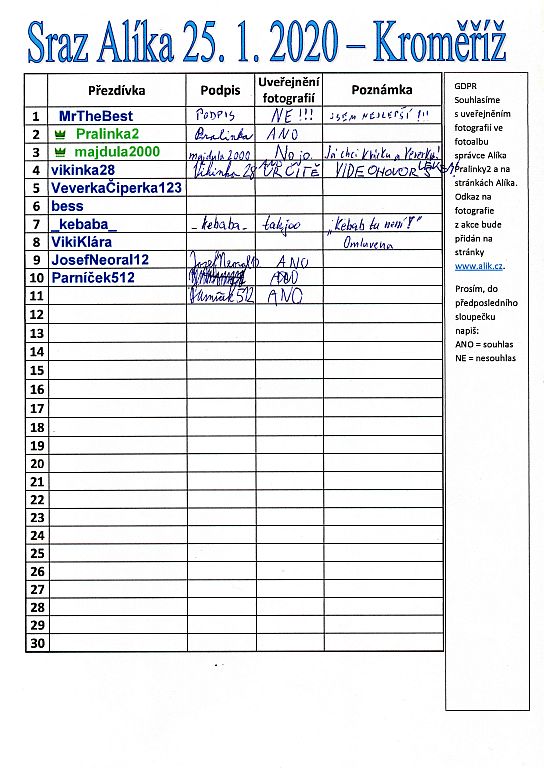 Sraz Alíka 25. 1. 2020 – Kroměříž
Přezdívka Podpis Uveřejnění fotografií Poznámka
1 MrTheBest PODPIS NE!!! JSEM NEJLEPŠÍ !!!
2 Pralinka2 Pralinka ANO
3 majdula2000 majdula2000 No jo Já chci Kvírku a Veverku!
4 vikinka28 Vikinka 28 ANO URČITĚ VIDEOHOVOR S
5 VeverkaČiperka123
6 bess
7 _kebaba_ _kebaba_ takjoo "Kebab tu není!"
8 VikiKlára Omluvena
9 JosefNeoral12 JosefNeoral12 ANO
10 Parníček512 ANO
11 Parníček512 ANO
12
13
14
15
16
17
18
19
20
21
22
23
24
25
26
27
28
29
30
GDPR
Souhlasíme
s uveřejněním
fotografií ve
fotoalbu
správce Alíka
Pralinky2 a na
stránkách Alíka.
Odkaz na
fotografie
z akce bude
přidán na
stránky
www.alik.cz.
Prosím, do
předposledního
sloupečku
napiš:
ANO = souhlas
NE = nesouhlas